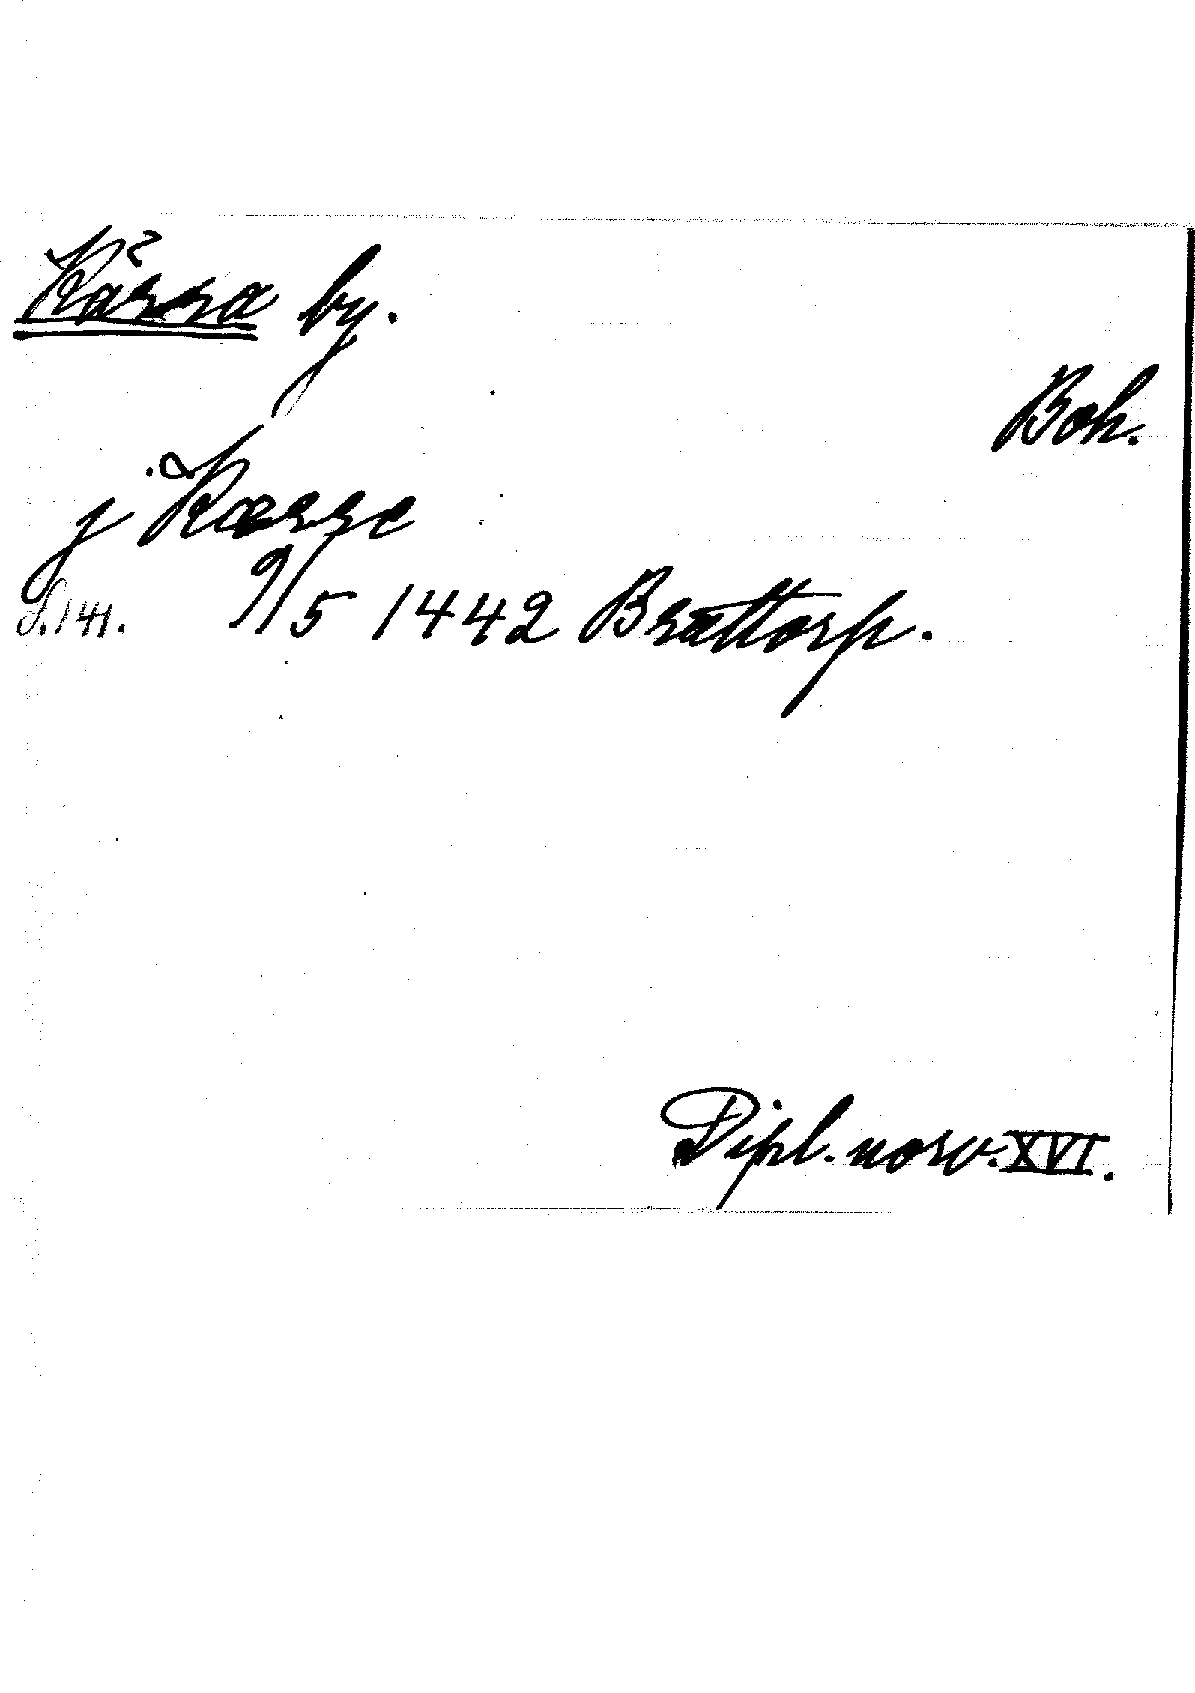 Kärra by.
Boh.
j Kærre
S. 141. 9/5 1442 Brættorp.
Dipl. norv. XVI.